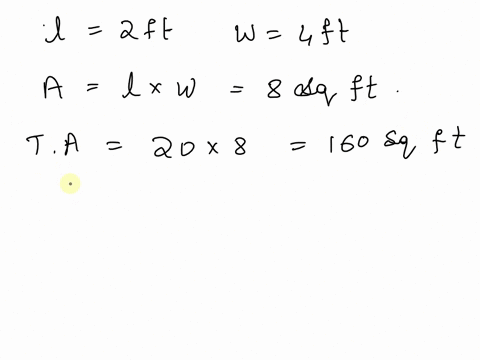 l = 2ft W = 4ft
A = l × W = 8 sq ft.
T.A = 20 × 8 = 160 sq ft